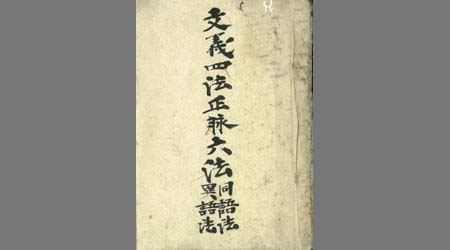 文義四法正脉六法
同語法
異語法